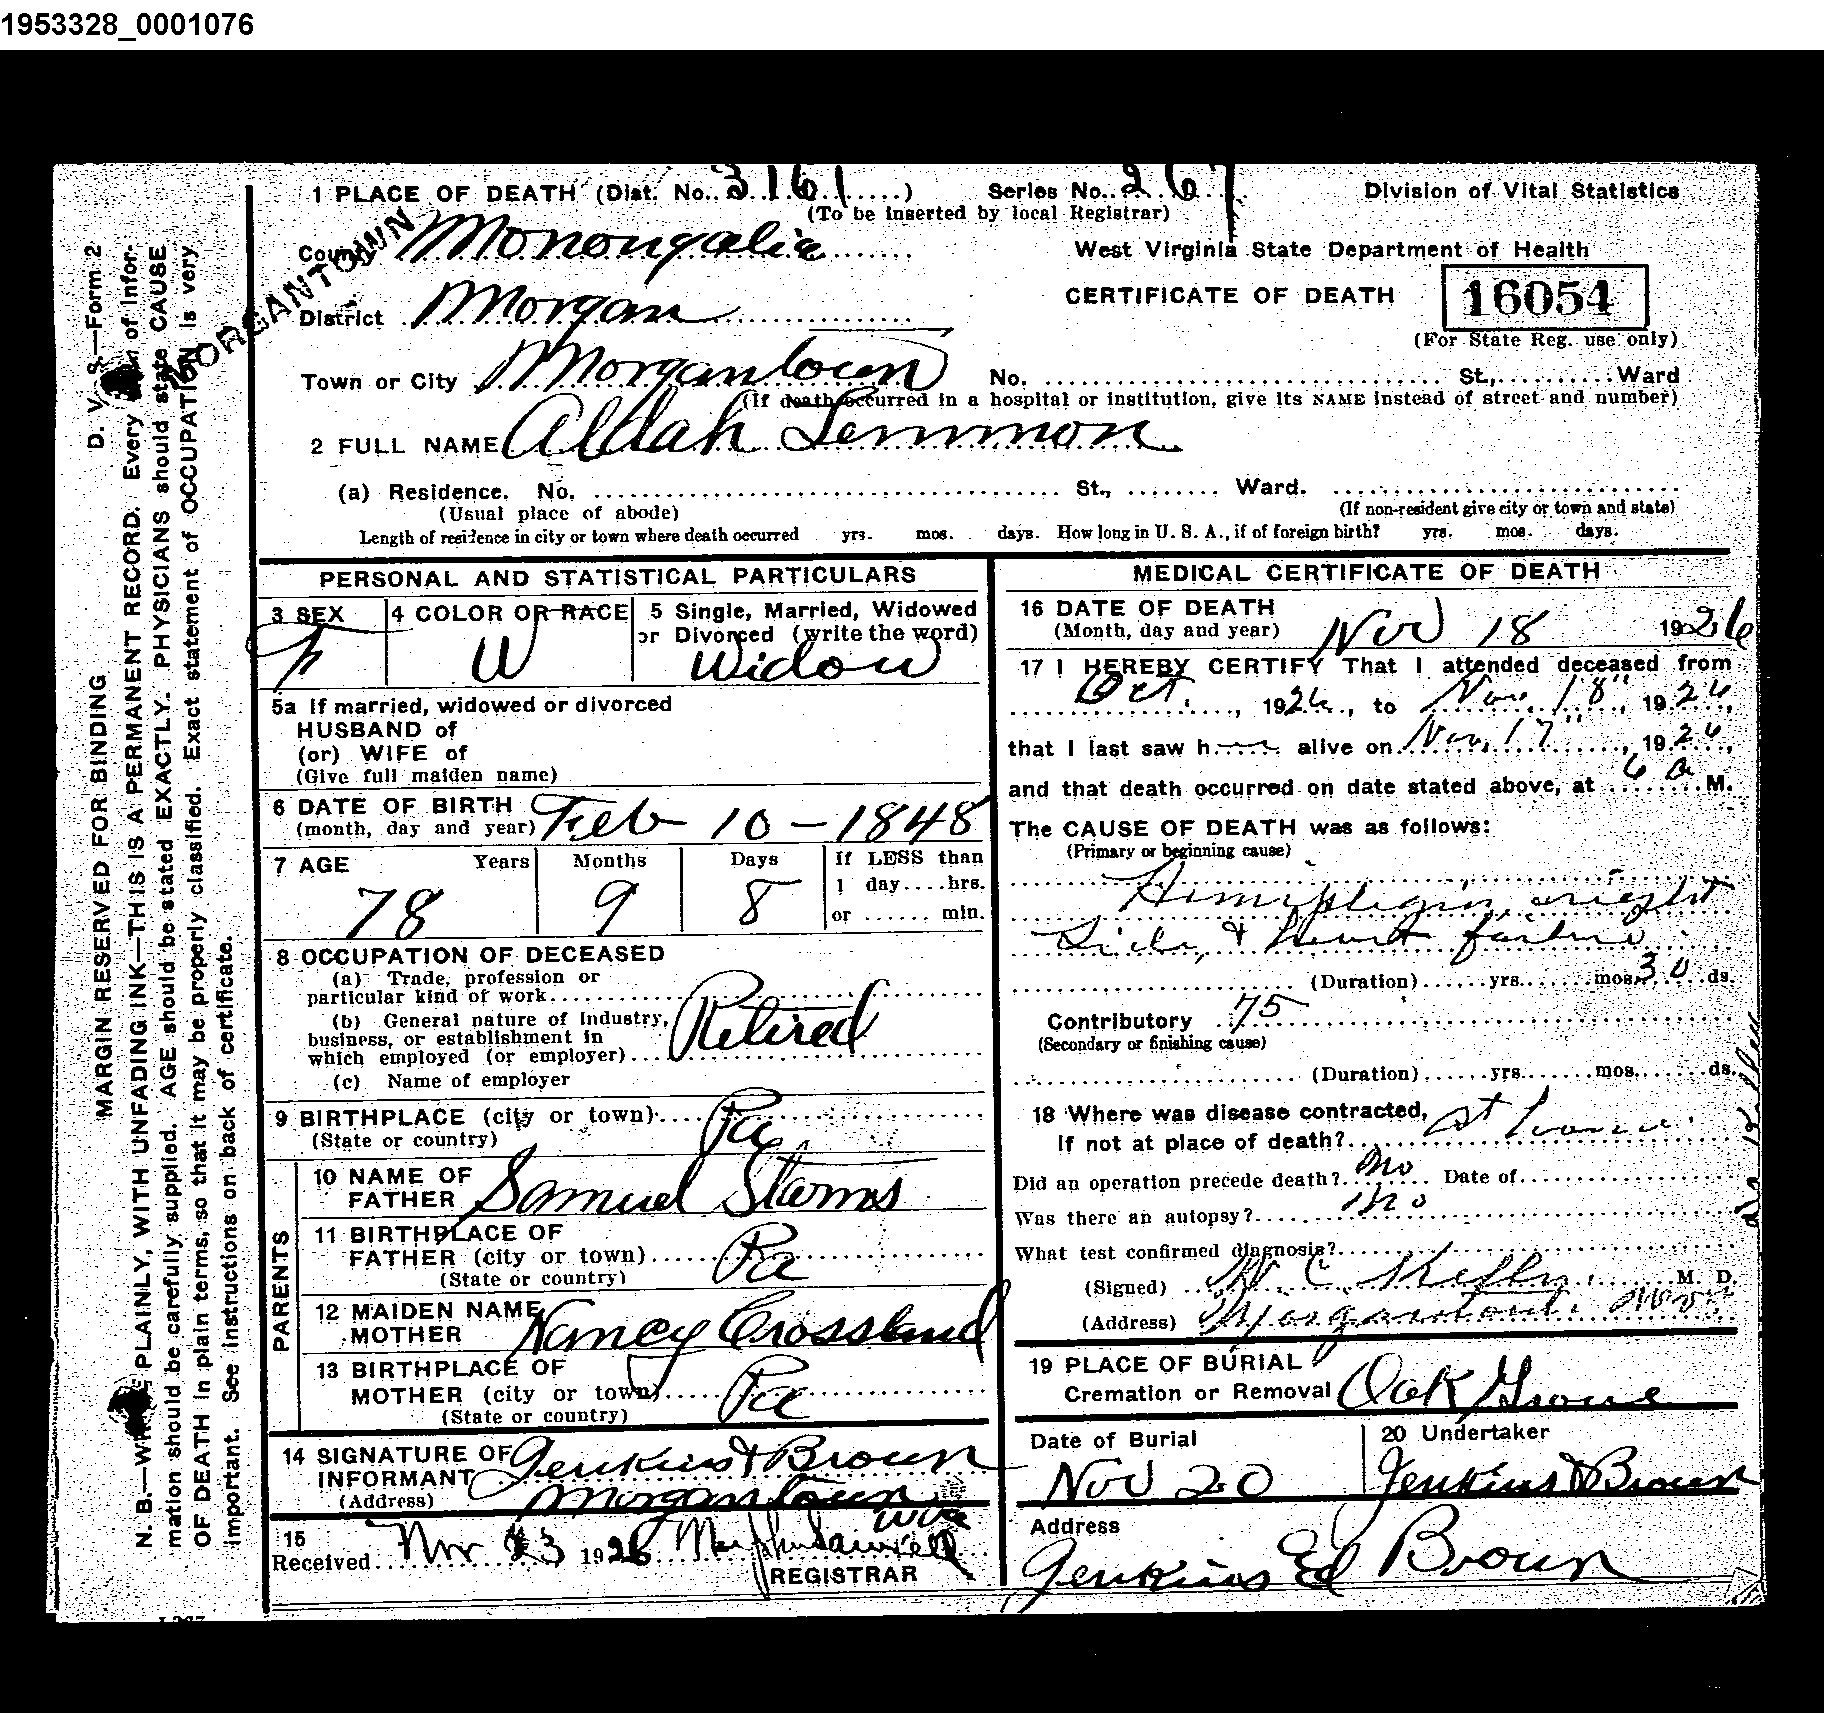 1953328_0001076
1 PLACE OF DEATH (Dist. No. 3161) Series No. 267 Division of Vital Statistics
(To be inserted by local Registrar)
County Monongalia West Virginia State Department of Health
MORGANTOWN
District Morgan CERTIFICATE OF DEATH 16054
(For State Reg. use only)
Town or City Morgantown No. St., Ward
(If death occurred in a hospital or institution, give its NAME instead of street and number)
2 FULL NAME Aldah Lemmon
(a) Residence. No. St., Ward.
(Usual place of abode) (If non-resident give city or town and state)
Length of residence in city or town where death occurred yrs. mos. days. How long in U. S. A., if of foreign birth? yrs. mos. days.
PERSONAL AND STATISTICAL PARTICULARS
3 SEX 4 COLOR OR RACE 5 Single, Married, Widowed
or Divorced (write the word)
F W Widow
5a If married, widowed or divorced
HUSBAND of
(or) WIFE of
(Give full maiden name)
6 DATE OF BIRTH Feb 10-1848
(month, day and year)
7 AGE Years Months Days If LESS than
1 day....hrs.
78 9 8 or ...... min.
8 OCCUPATION OF DECEASED
(a) Trade, profession or
particular kind of work
(b) General nature of Industry,
business, or establishment in
which employed (or employer) Retired
(c) Name of employer
9 BIRTHPLACE (city or town) Pa
(State or country)
PARENTS
10 NAME OF
FATHER Samuel Starns
11 BIRTHPLACE OF
FATHER (city or town) Pa
(State or country)
12 MAIDEN NAME
MOTHER Nancy Crossland
13 BIRTHPLACE OF
MOTHER (city or town) Pa
(State or country)
14 SIGNATURE OF
INFORMANT Jenkins & Brown
(Address) Morgantown
WVa
15
Received Nov 23 1926
REGISTRAR
MEDICAL CERTIFICATE OF DEATH
16 DATE OF DEATH
(Month, day and year) Nov 18 1926
17 I HEREBY CERTIFY That I attended deceased from
Oct. , 1926, to Nov. 18", 1926,
that I last saw h alive on Nov. 17", 1926,
and that death occurred on date stated above, at 6 a M.
The CAUSE OF DEATH was as follows:
(Primary or beginning cause)
Hemiplegia, right
Side, & heart failure
(Duration) yrs. mos. 30 ds.
Contributory 75
(Secondary or finishing cause)
(Duration) yrs. mos. ds.
18 Where was disease contracted,
If not at place of death? at home
Did an operation precede death? No Date of
Was there an autopsy? No
What test confirmed diagnosis?
(Signed) W C Kelly M. D.
(Address) Morgantown
19 PLACE OF BURIAL
Cremation or Removal Oak Grove
Date of Burial 20 Undertaker
Nov 20 Jenkins & Brown
Address
Jenkins Ed Brown
D. V. S.—Form 2
MARGIN RESERVED FOR BINDING
N. B.—WRITE PLAINLY, WITH UNFADING INK—THIS IS A PERMANENT RECORD. Every item of infor-
mation should be carefully supplied. AGE should be stated EXACTLY. PHYSICIANS should state CAUSE
OF DEATH in plain terms, so that it may be properly classified. Exact statement of OCCUPATION is very
important. See instructions on back of certificate.